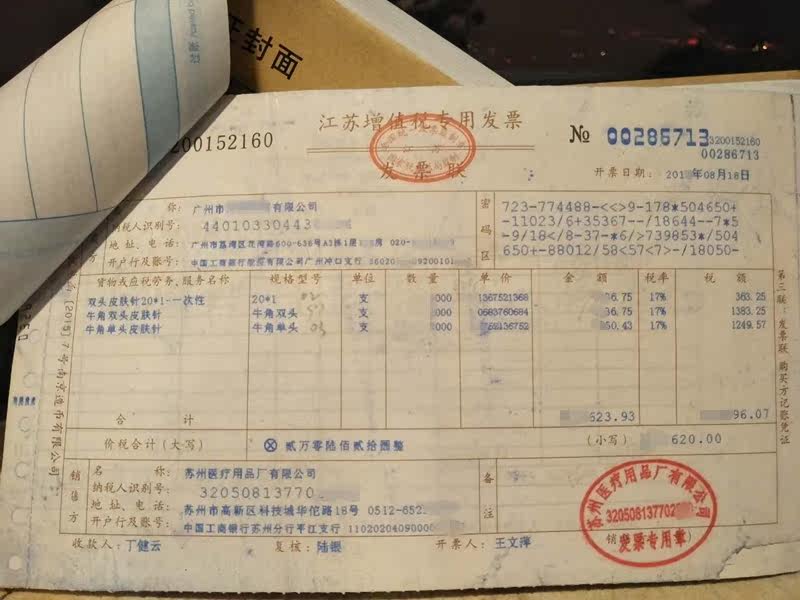 正封面
江苏增值税专用发票
发票联
200152160
№ 00286713
3200152160
00286713
开票日期: 201 年08月18日
称: 广州市 有限公司
纳税人识别号: 44010330443
地址、电话: 广州市荔湾区花湾路600-636号A3栋1层 房 020-
开户行及账号: 中国工商银行股份有限公司广州冲口支行 36020 9200101
密码区
723-774488-<<>9-178*504650+
-11023/6+35367--/18644--7*5
-9/18</8-37-*6/>739853*/504
650+-88012/58<57<7>-/18050-
货物或应税劳务、服务名称 规格型号 单位 数量 单价 金额 税率 税额
双头皮肤针20*1-一次性 20*1 支 000 1367521368 6.75 17% 363.25
牛角双头皮肤针 牛角双头 支 000 0683760684 6.75 17% 1383.25
牛角单头皮肤针 牛角单头 03 支 000 52136752 50.43 17% 1249.57
合计 623.93 96.07
价税合计(大写) ⊗ 贰万零陆佰贰拾圆整 (小写) 620.00
销售方
名称: 苏州医疗用品厂有限公司
纳税人识别号: 32050813770
地址、电话: 苏州市高新区科技城华佗路18号 0512-652
开户行及账号: 中国工商银行苏州分行平江支行 1102020409000
备注
苏州医疗用品厂有限公司
32050813770
发票专用章
收款人: 丁健云 复核: 陆银 开票人: 王文萍
第三联:发票联 购买方记账凭证
[2015]7号南京造币有限公司